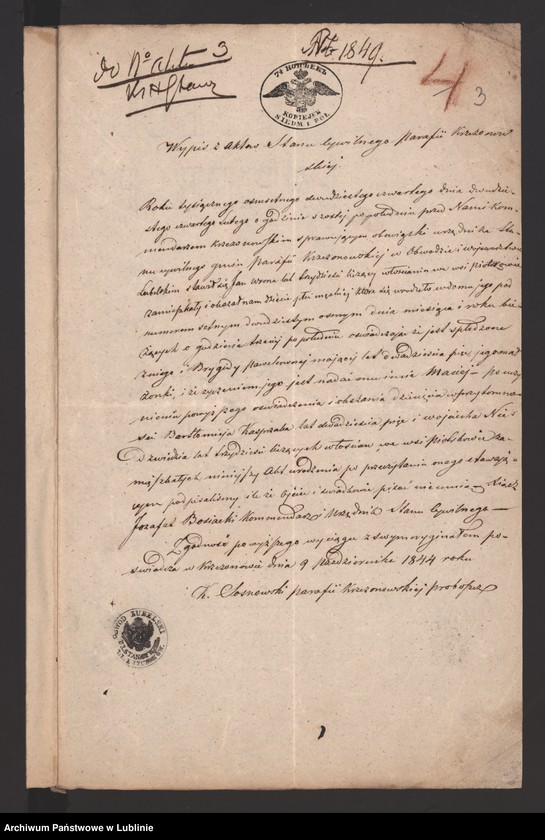 do No aktu 3
1849.
4
3
7½ КОПѢЕКЪ
KOPIEJEK
SIEDM I PÓŁ
Wypis z Aktów Stanu Cywilnego parafii Krzczonow
skiej.
Roku tysiącznego osmsetnego dwudziestego czwartego dnia dwudzie-
stego czwartego Lutego o godzinie szostej po południu przed Nami Kom-
mendarzem Krzczonowskim sprawującym obowiązki urzędnika Sta-
nu cywilnego gminy Parafii Krzczonowskiej w Obwodzie i wojewodztwie
Lubelskim stawił się Jan Wrona lat trzydzieści liczący włościanin we wsi Piotrkowie
zamieszkały i okazał nam dziecie płci męzkiej które się urodziło w domu jego pod
numerem setnym dwudziestym osmym dnia miesiąca i roku bie-
żących o godzinie trzeciej po południu oswiadczając iż jest spłodzone
z niego i Brygidy Pawelcowny mającej lat dwadzieścia pięć jego mał
żonki, i że życzeniem jego jest nadać mu imie Maciej – po uczy
nieniu powyższego oswiadczenia i okazania dziecięcia w przytomno-
sci Bartłomieja Kasprzaka lat dwadzieścia pięć i Wojciecha Nie
dzwiedzia lat trzydzieści liczących włościan we wsi Piotrkowie za-
mieszkałych niniejszy Akt urodzenia po przeczytaniu onego stawają-
cym podpisaliśmy ile że Ojciec i świadkowie pisać nieumieją
Jozafat Kommendarz Urzędnik Stanu Cywilnego
Zgodność powyższego wyciągu z swym oryginałem po-
swiadcza w Krzczonowie dnia 9 Października 1844 roku
K. Sosnowski parafii Krzczonowskiej proboszcz
Archiwum Państwowe w Lublinie